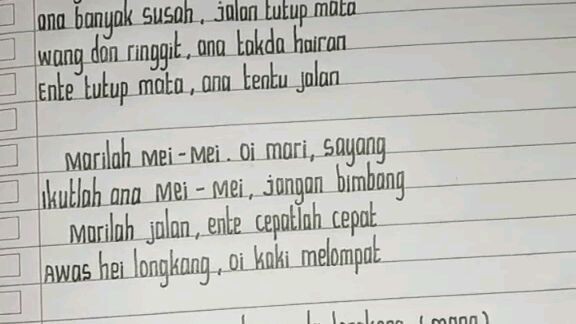 ana banyak susah, jalan tutup mata
wang dan ringgit, ana takda hairan
Ente tutup mata, ana tentu jalan
Marilah Mei-Mei. Oi mari, sayang
ikutlah ana Mei - Mei, jangan bimbang
Marilah jalan, ente cepatlah cepat
Awas hei longkang, oi kaki melompat
longkang (mana)